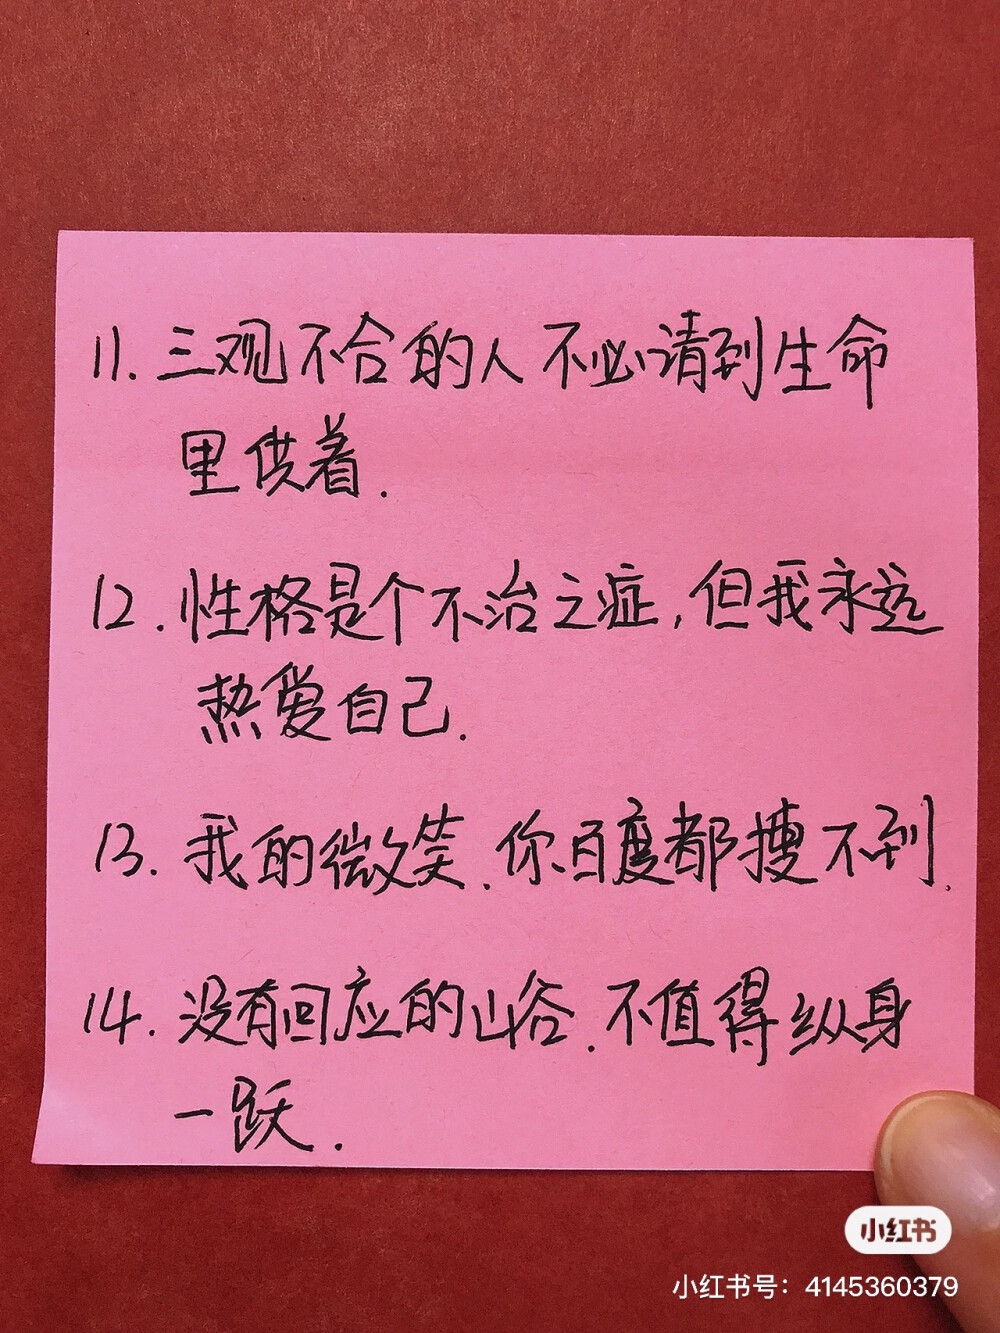 11. 三观不合的人不必请到生命
里供着.
12. 性格是个不治之症,但我永远
热爱自己.
13. 我的微笑.你百度都搜不到.
14. 没有回应的山谷.不值得纵身
一跃.
小红书
小红书号：4145360379